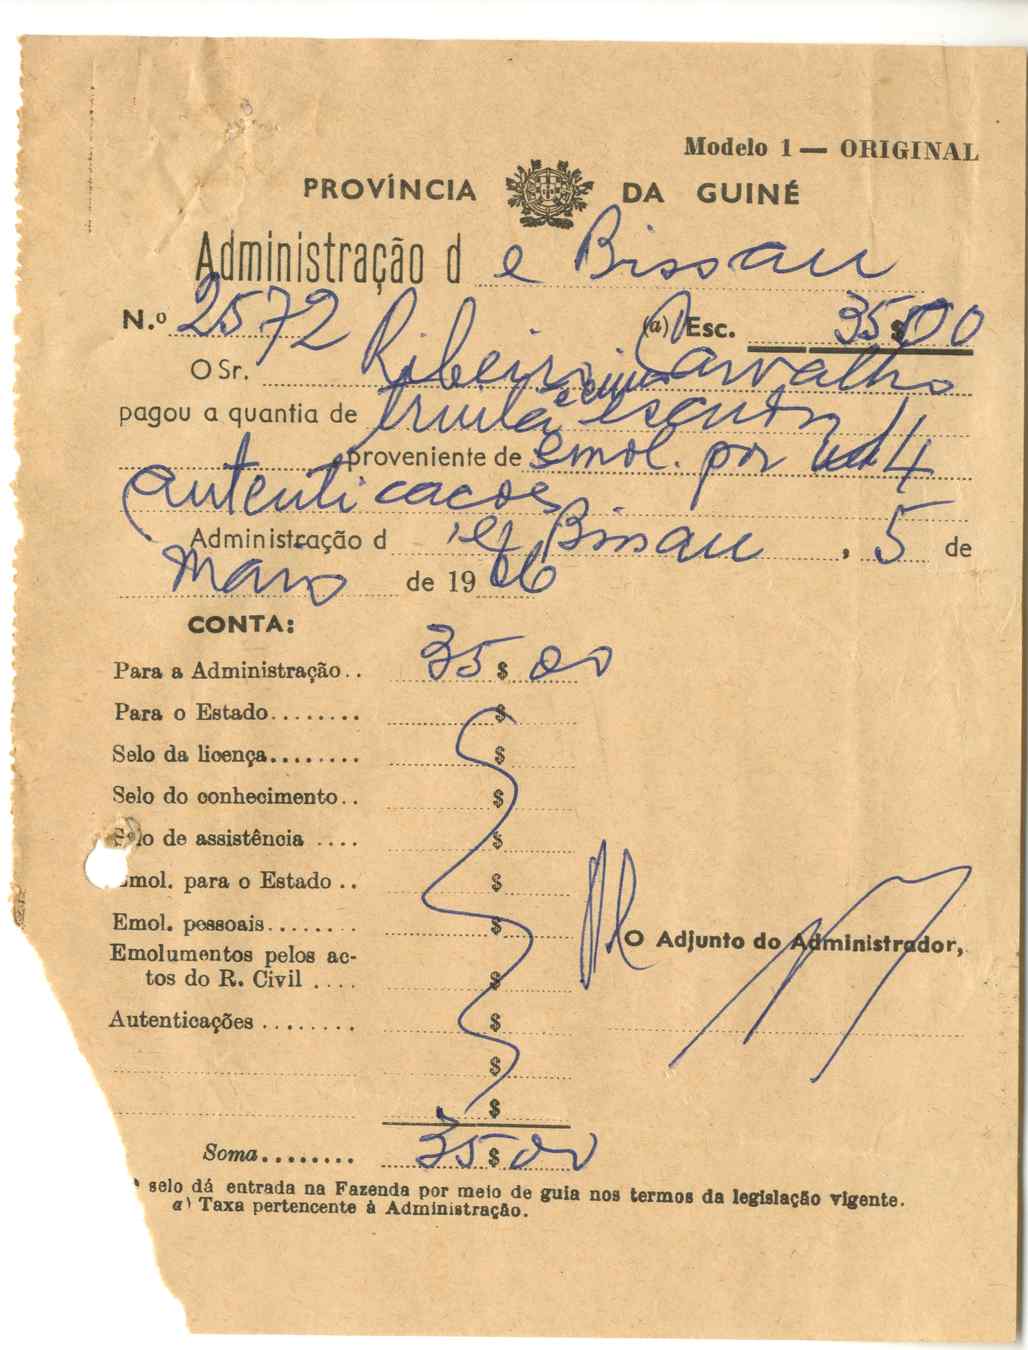 Modelo 1 — ORIGINAL
PROVÍNCIA DA GUINÉ
Administração d e Bissau
N.º 2572 (a) Esc. 35$00
O Sr. Ribeiro Carvalho
pagou a quantia de trinta e cinco escudos
proveniente de emol. por 4
autenticacoes
Administração d e Bissau, 5 de
Maio de 1966
CONTA:
Para a Administração.. 35$00
Para o Estado........ $
Selo da licença........ $
Selo do conhecimento.. $
Selo de assistência .... $
Emol. para o Estado .. $
Emol. pessoais........ $
O Adjunto do Administrador,
Emolumentos pelos ac-
tos do R. Civil .... $
Autenticações ........ $
$
$
Soma........ 35$00
selo dá entrada na Fazenda por meio de guia nos termos da legislação vigente.
a) Taxa pertencente à Administração.